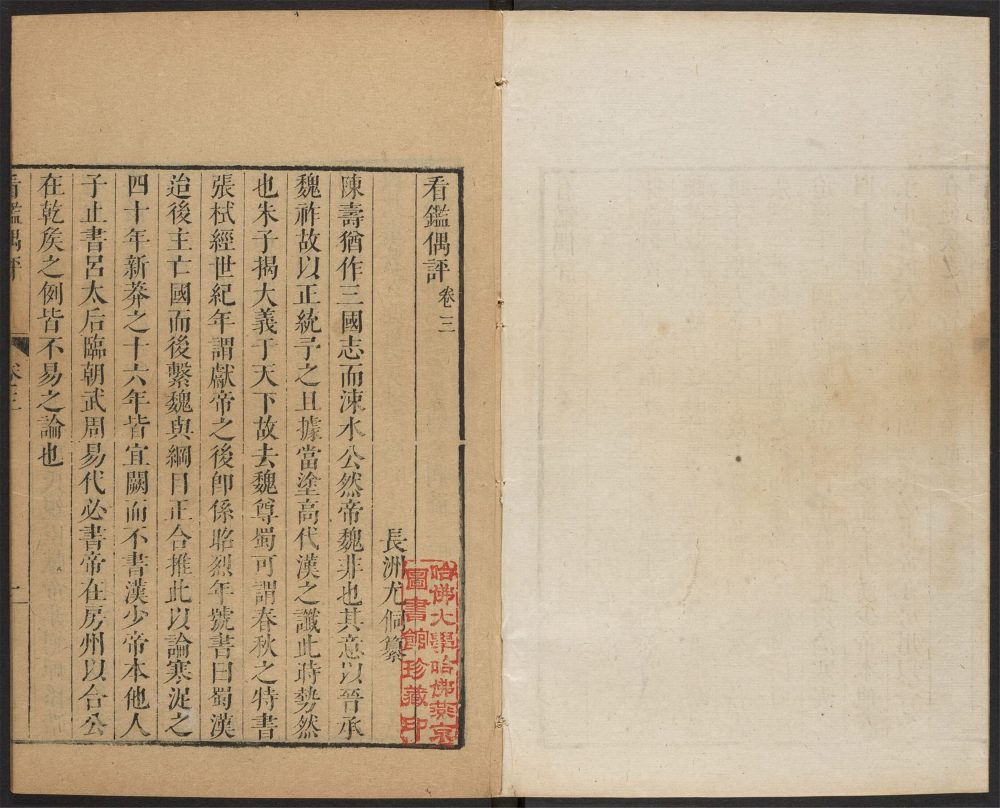 看鑑偶評 卷三
長洲尤侗纂
陳壽猶作三國志而涑水公然帝魏非也其意以晉承
魏祚故以正統予之且據當塗高代漢之讖此時勢然
也朱子揭大義于天下故去魏尊蜀可謂春秋之特書
張栻經世紀年謂獻帝之後卽係昭烈年號書曰蜀漢
迨後主亡國而後繫魏與綱目正合推此以論寒浞之
四十年新莽之十六年皆宜闕而不書漢少帝本他人
子止書呂太后臨朝武周易代必書帝在房州以合公
在乾矦之例皆不易之論也
看鑑偶評
卷三
一
哈佛大學哈佛燕京
圖書館珍藏印